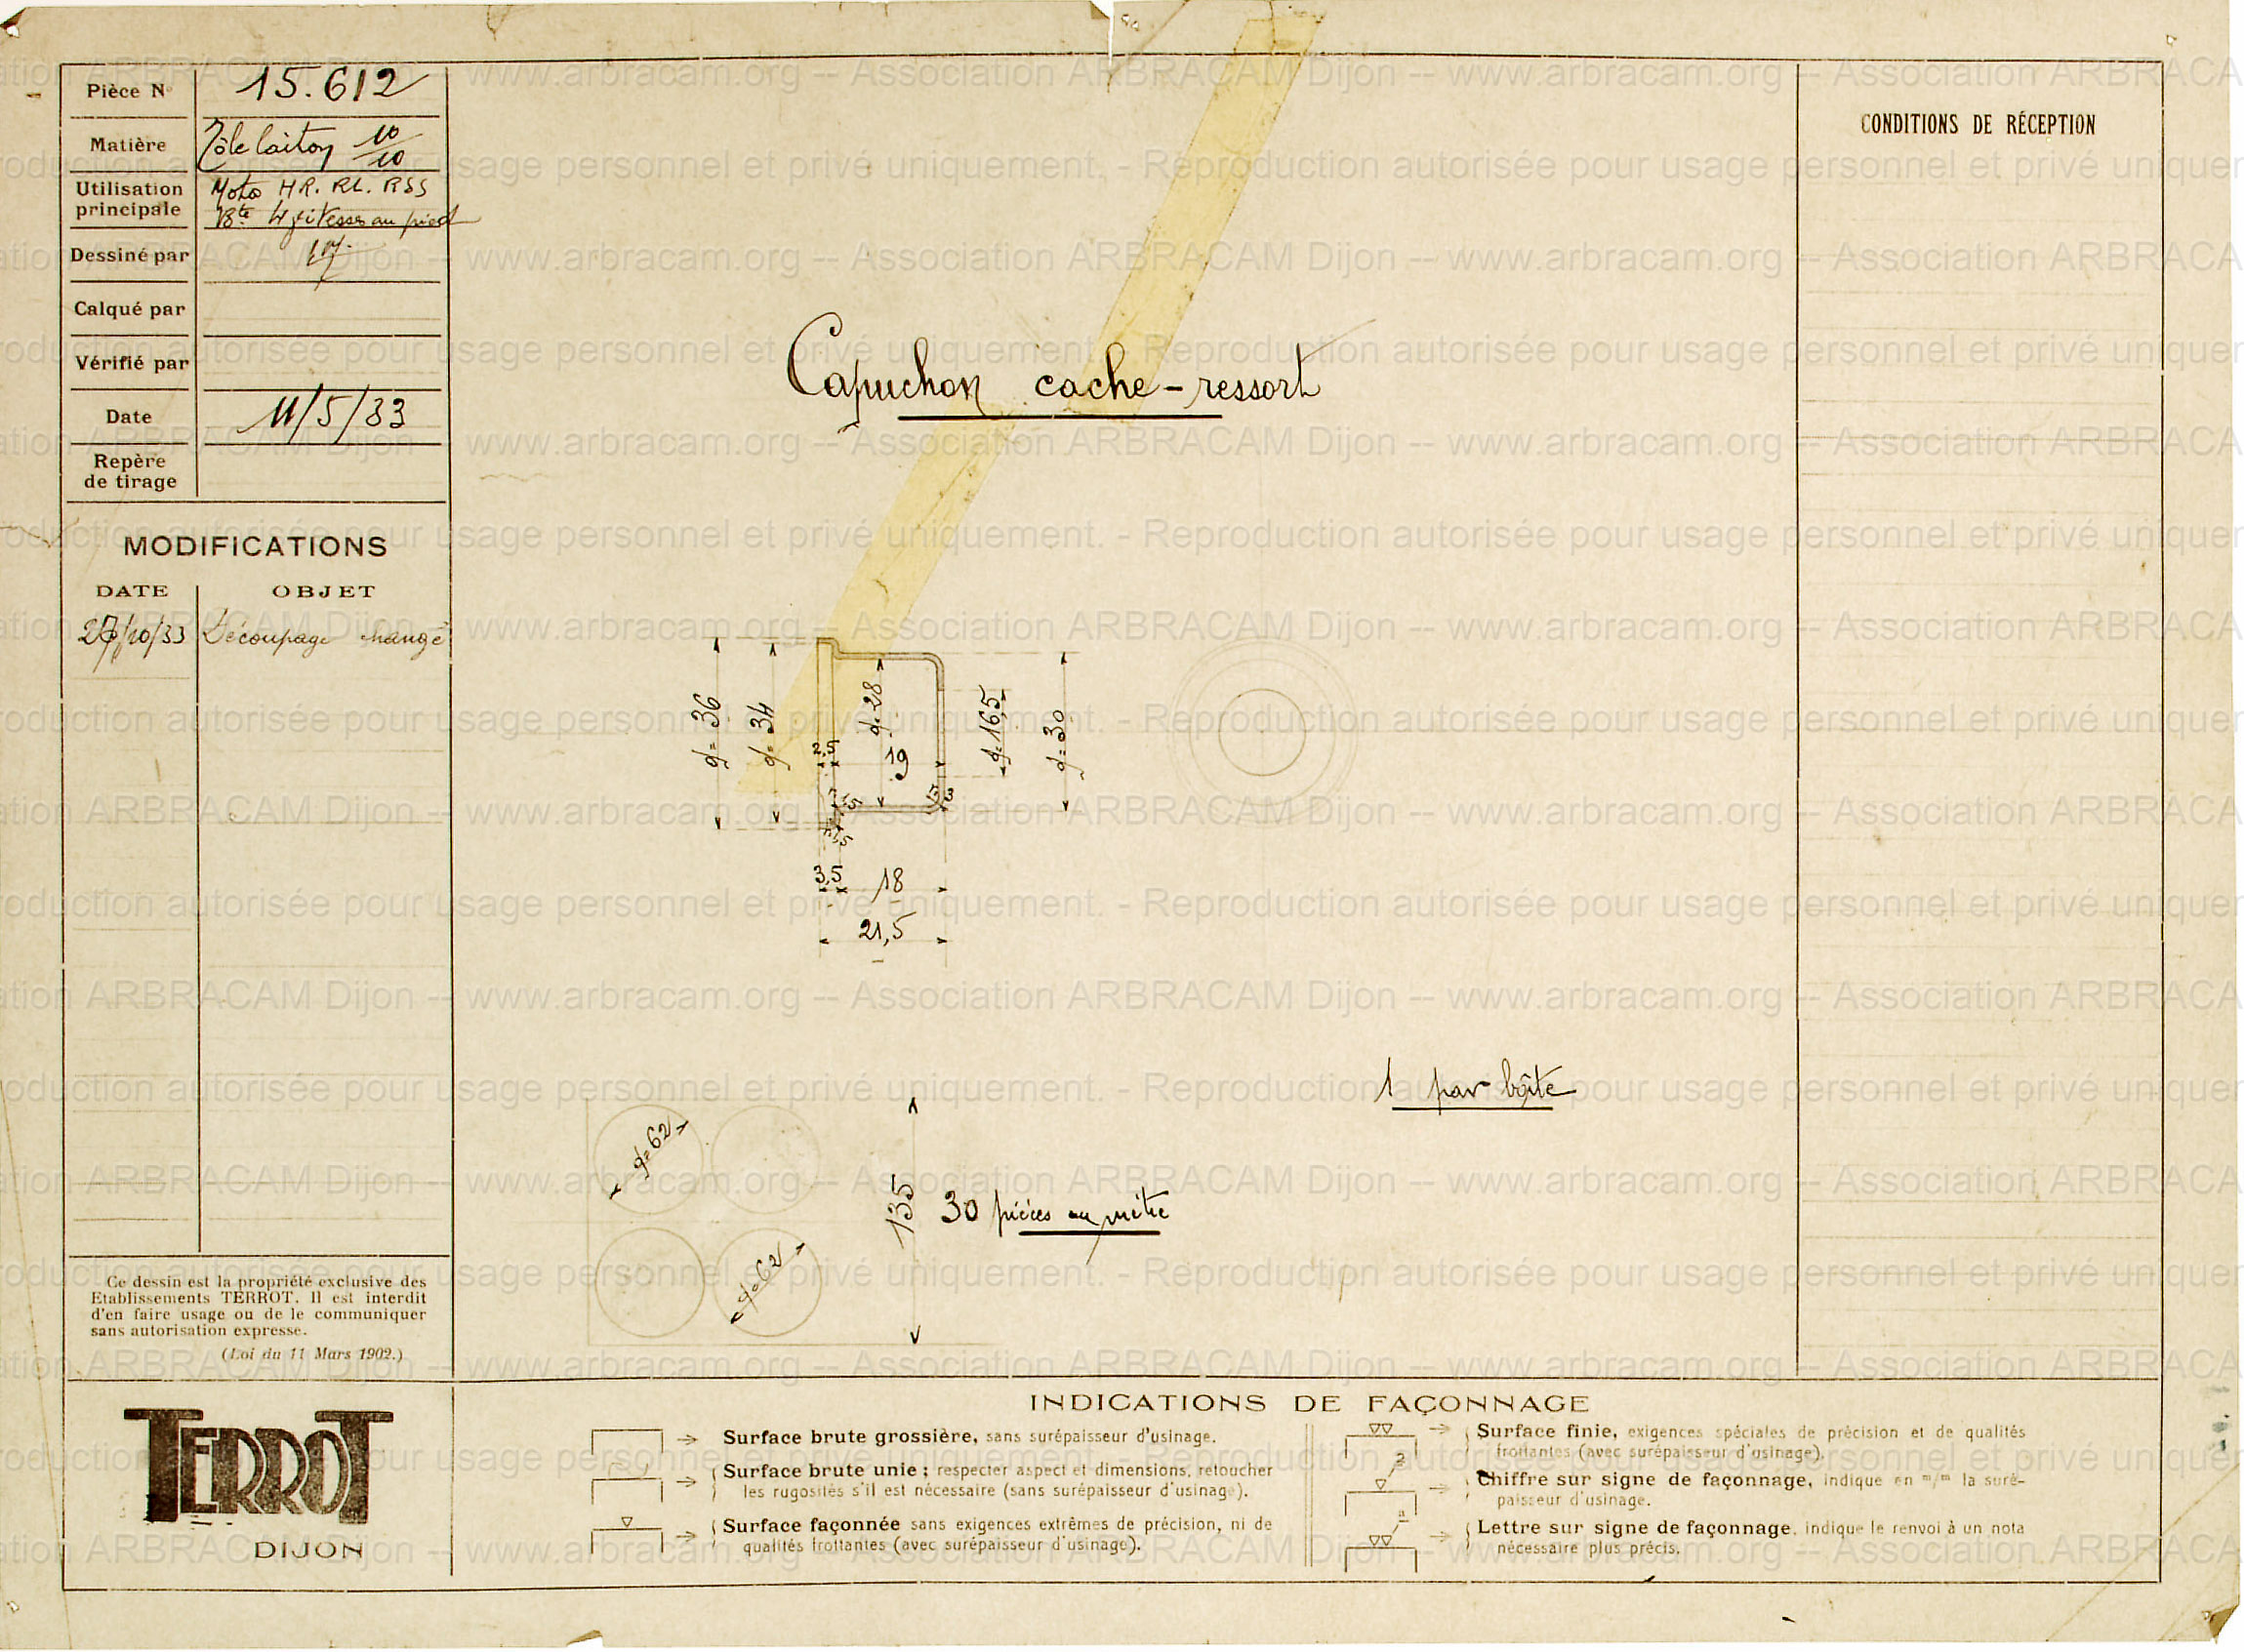 Pièce N° 15.612
Matière Tôle laiton 10/10
Utilisation principale Moto HR. RL. RSS
Bte 4 vitesses au pied
Dessiné par
Calqué par
Vérifié par
Date 11/5/33
Repère
de tirage
MODIFICATIONS
DATE OBJET
27/10/33 Découpage changé
Ce dessin est la propriété exclusive des
Etablissements TERROT. Il est interdit
d'en faire usage ou de le communiquer
sans autorisation expresse.
(Loi du 11 Mars 1902.)
TERROT
DIJON
Capuchon cache-ressort
d=36
d=34
d=28
d=16,5
d=30
2,5
19
3,5
18
21,5
1 par boîte
d=62
d=62
135
30 pièces au mètre
CONDITIONS DE RÉCEPTION
INDICATIONS DE FAÇONNAGE
Surface brute grossière, sans surépaisseur d'usinage.
Surface brute unie ; respecter aspect et dimensions, retoucher
les rugosités s'il est nécessaire (sans surépaisseur d'usinage).
Surface façonnée sans exigences extrêmes de précision, ni de
qualités frottantes (avec surépaisseur d'usinage).
Surface finie, exigences spéciales de précision et de qualités
frottantes (avec surépaisseur d'usinage).
2
Chiffre sur signe de façonnage, indique en m/m la suré-
paisseur d'usinage.
a
Lettre sur signe de façonnage, indique le renvoi à un nota
nécessaire plus précis.
Association ARBRACAM Dijon -- www.arbracam.org -- Association ARBRACAM Dijon -- www.arbracam.org
Reproduction autorisée pour usage personnel et privé uniquement. - Reproduction autorisée pour usage personnel et privé uniquement.